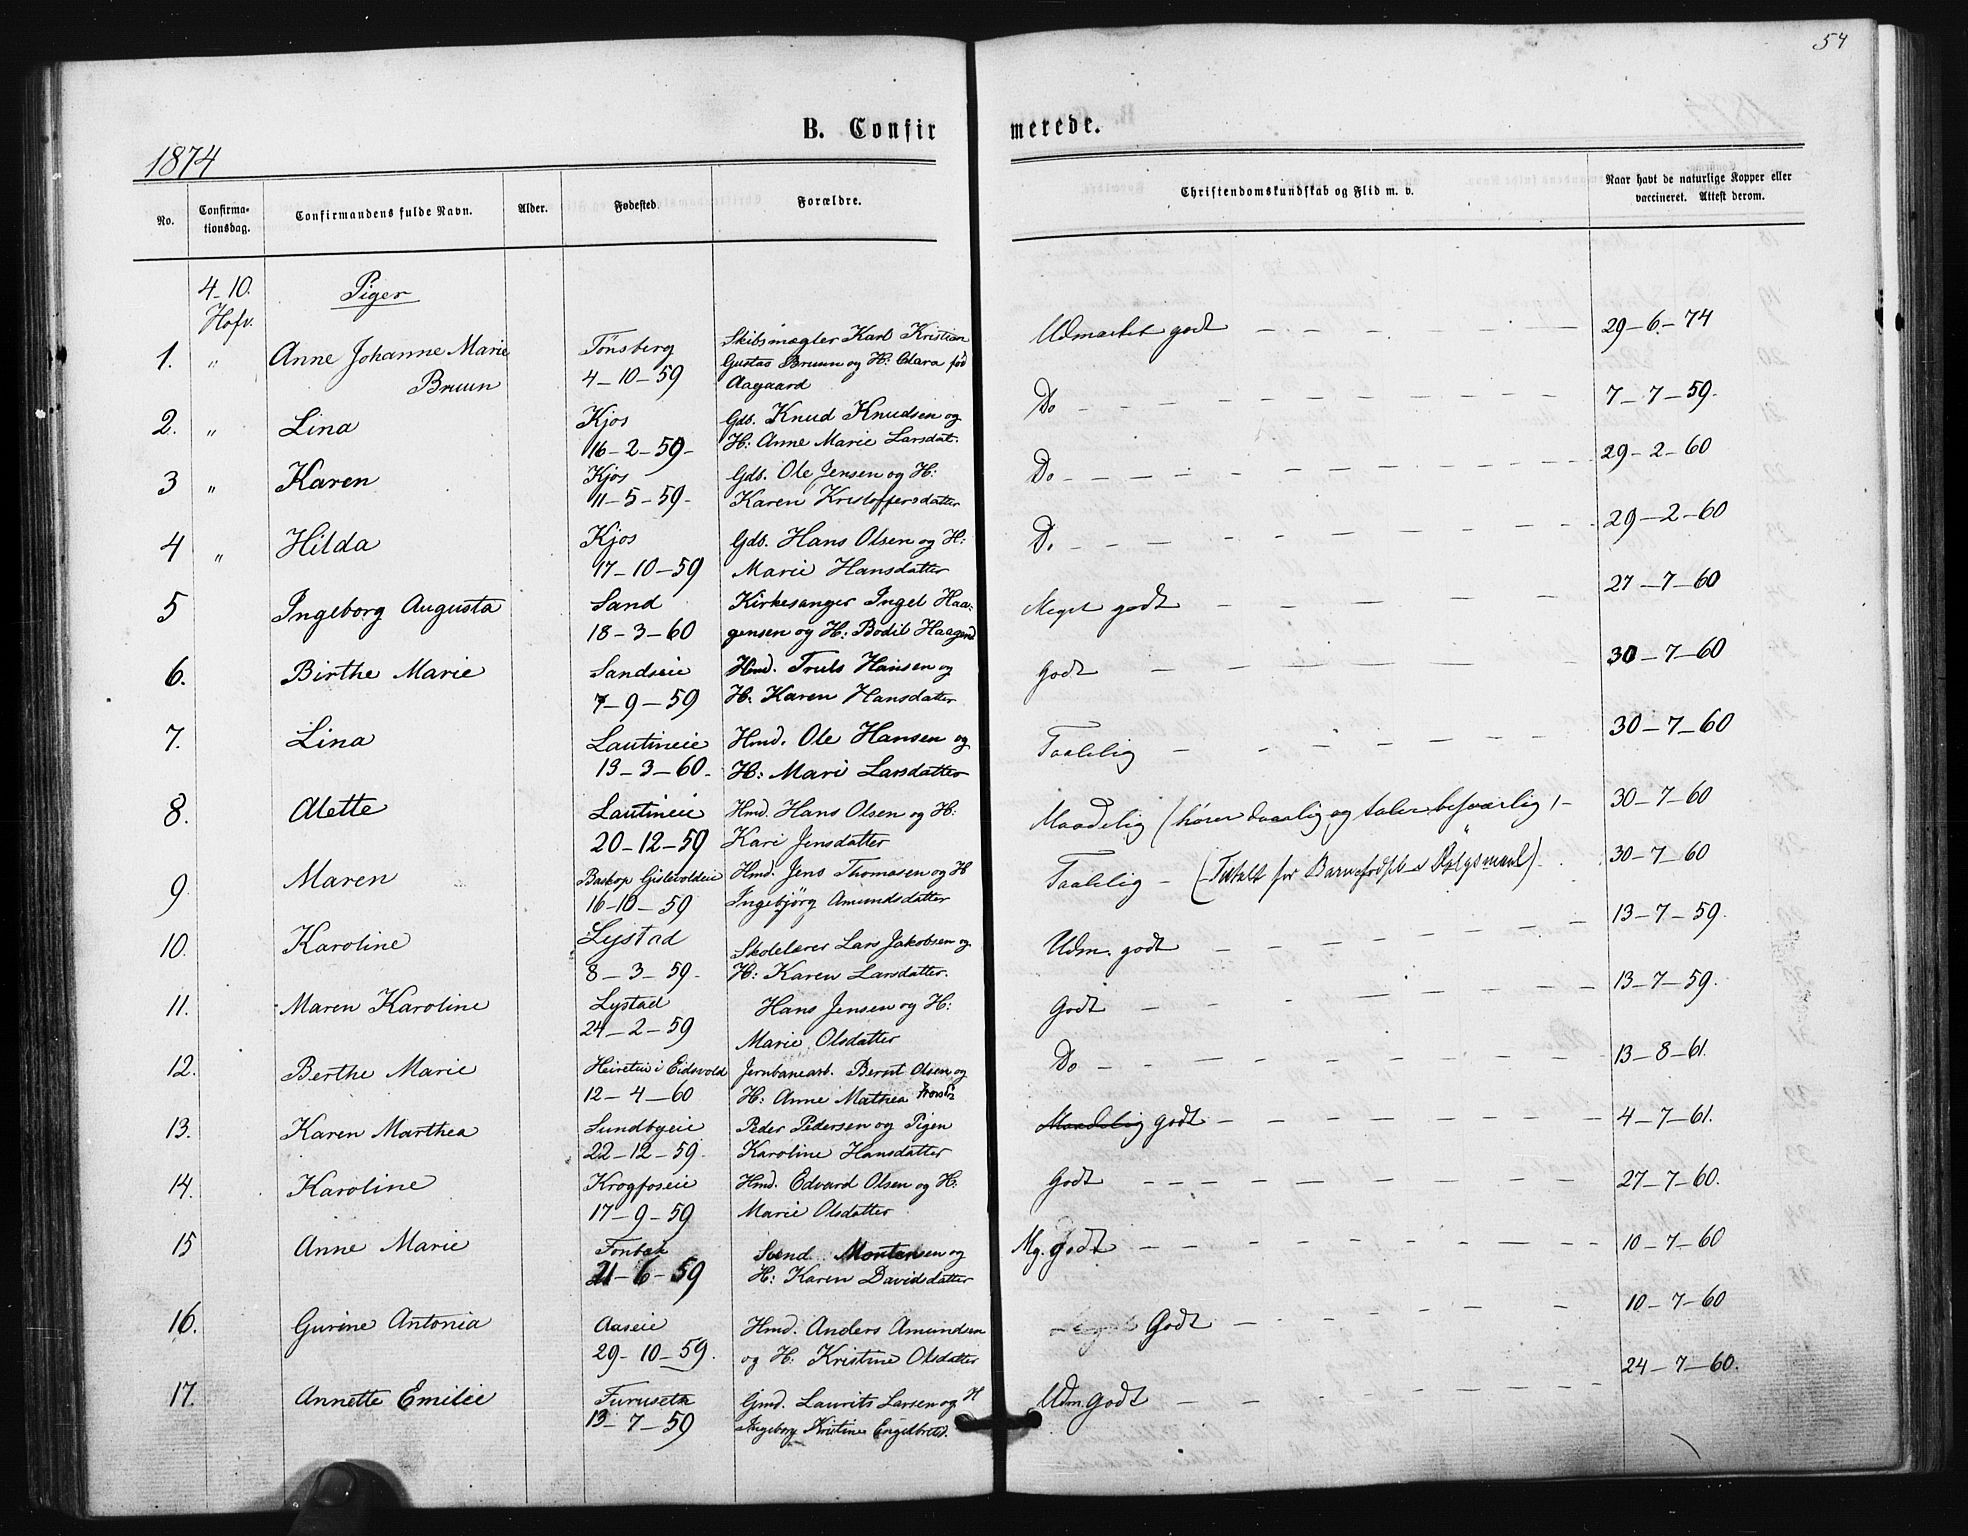 54
B. Confirmerede.
1874
No. Confirmationsdag. Confirmandens fulde Navn. Alder. Fødested. Forældre. Christendomskundskab og Flid m. v. Naar havt de naturlige Kopper eller vaccineret. Attest derom.
4-10. Piger
Hofv.
1. " Anne Johanne Marie Tønsberg Skibsmægler Karl Kristian Udmærket godt 29-6-74
Bruun 4-10-59 Gustav Bruun og H: Clara fød
Aagaard
2. " Lina Kjos Gdb. Knud Knudsen og Do 7-7-59.
16-2-59- H: Anne Marie Larsdat:
3 " Karen Kjos Gdb. Ole Jensen og H: Do 29-2-60
11-5-59- Karen Kristoffersdatter
4 " Hilda Kjos Gdb. Hans Olsen og H: Do 29-2-60
17-10-59 Marie Hansdatter
5 Ingeborg Augusta Sand Kirkesanger Ingel Haa- Meget godt 27-7-60
18-3-60 gensen og H: Bodil Haagensd
6. Birthe Marie Sandeie Hmd. Truls Hansen og Godt 30-7-60
7-9-59 H: Karen Hansdatter
7. Lina Lautineie Hmd. Ole Hansen og Taalelig 30-7-60
13-3-60. H: Mari Larsdatter
8. Alette Lautineie Hmd. Hans Olsen og H: Maadelig (hører daarlig og taler besværlig) 30-7-60
20-12-59 Kari Jensdatter
9. Maren Baskop Gislevoldeie Hmd. Jens Thomasen og H Taalelig - 30-7-60
16-10-59 Ingebjörg Amundsdatter
10. Karoline Lystad Skolelærer Lars Jakobsen og Udm. godt 13-7-59.
8-3-59. H: Karen Larsdatter.
11. Maren Karoline Lystad Hans Jensen og H: Godt 13-7-59.
24-2-59 Marie Olsdatter
12. Berthe Marie i Eidsvold Jernbanearb. Bernt Olsen og Do 13-8-61.
12-4-60 H: Anne Mathea
13. Karen Marthea Sundbyeie Peder Pedersen og Pigen Maadelig godt 4-7-61.
22-12-59. Karoline Hansdatter
14. Karoline Krogfoseie Hmd. Edvard Olsen og H: Godt 27-7-60.
17-9-59 Marie Olsdatter
15 Anne Marie Tonbæk Svend Mortensen og Mg. godt 10-7-60
21-6-59 H: Karen Davidsdatter
16. Gurine Antonia Aaseie Hmd. Anders Amundsen Godt 10-7-60
29-10-59. og H: Kristine Olsdatter
17. Annette Emilie Furuseth Gmd. Laurits Larsen og H Udm. godt 24-7-60.
13-7-59 Ingeborg Kristine Engelbretsd.